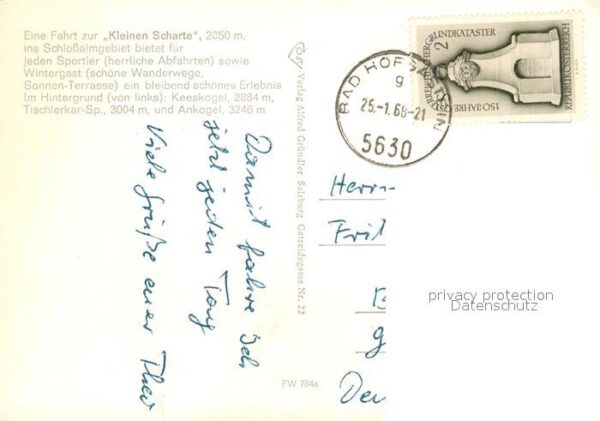 Eine Fahrt zur „Kleinen Scharte", 2050 m,
ins Schloßalmgebiet bietet für
jeden Sportler (herrliche Abfahrten) sowie
Wintergast (schöne Wanderwege,
Sonnen-Terrasse) ein bleibend schönes Erlebnis
Im Hintergrund (von links): Keeskogel, 2884 m,
Tischlerkar-Sp., 3004 m, und Ankogel, 3246 m
Damit fahre ich
jetzt jeden Tag
Viele Grüße euer
Cosy-Verlag Alfred Gründler, Salzburg, Getreidegasse Nr. 22
FW 784a
BAD HOFGASTEIN
g
25.-1.68-21
5630
150 JAHRE ÖSTERREICHISCHER GRUNDKATASTER
2
REPUBLIK ÖSTERREICH
Herrn
Frit
privacy protection
Datenschutz